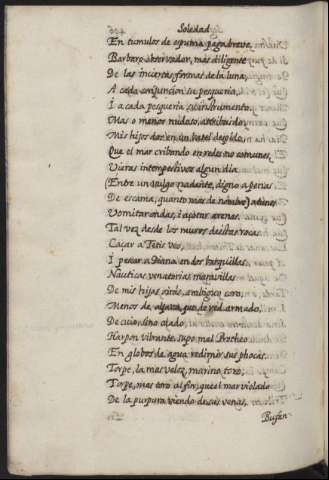 Soledad
En tumulos de espuma paga breue,
Barbaro observador, mas diligente
De las inciertas formas de la luna,
A cada conjuncion su pesqueria,
I a cada pesqueria su instrumento,
Mas o menos nudoso, atribuido
Mis hijos dos en un batel despido,
Que el mar cribando en redes no comunes,
Vieras intempestivos algun dia
(Entre un vulgo nadante, digno a penas
De escama, quanto mas de nombre) atunes
Vomitar ondas, i açotar arenas.
Tal vez desde los muros destas rocas
Caçar a Tetis veo,
I pescar a Diana en dos barquillas.
Nauticas venatorias maravillas
De mis hijas oirás, ambiguo coro,
Menos de aljava, que de red armado,
De cuio, sino alado,
Harpon vibrante, supo mal Protheo
En globos de agua redimir sus phocas.
Torpe, la mas veloz, marino toro,
Torpe, mas toro al fin, que el mar violado
De la purpura viendo de sus venas,
Bufan